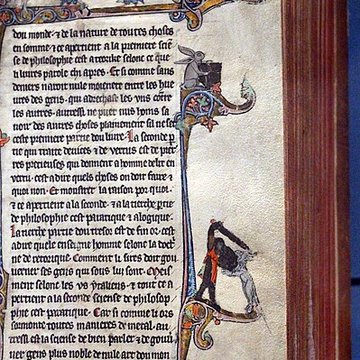 dou monde · & de la nature de toutes choses
en somme & ce apertient a la premiere scie
se de philosophie cest a teorike selonc ce que
li liures parole chi apres · Et si comme sans
deniers nauoit nule moienete entre les hue
ures des gens · qui adrechast les vns contre
les autres. autressi ne puet nuis hom sa
uoir des autres choses plainement sil ne set
ceste premiere partie dou liure · La seconde p
tie qui traite de uices & de uertus est de pie
res precieuses qui donnent a homme delit et
uertu · cest a dire quels choses on doit faire &
quoi non · Et moustre la raison por quoi ·
& ce apertient a la seconde · & a la tierche ptie
de philosophie cest pratique & a logique ·
La tierche partie dou tresor est de fin or · cest
a dire quele enseigne homme selonc la doct
ne de retorique · Comment li sires doit gou
uerner ses gens qui sous lui sont · Meis
ment selonc les vs ytaliens · & tout ce a
pertient a la seconde science de philosop
phie cest pratique · Car si comme li ors
sormonte toutes manieres de metal · au
tressi est la sience de bien parler & de gou
uerner gens plus noble de nule art dou mon